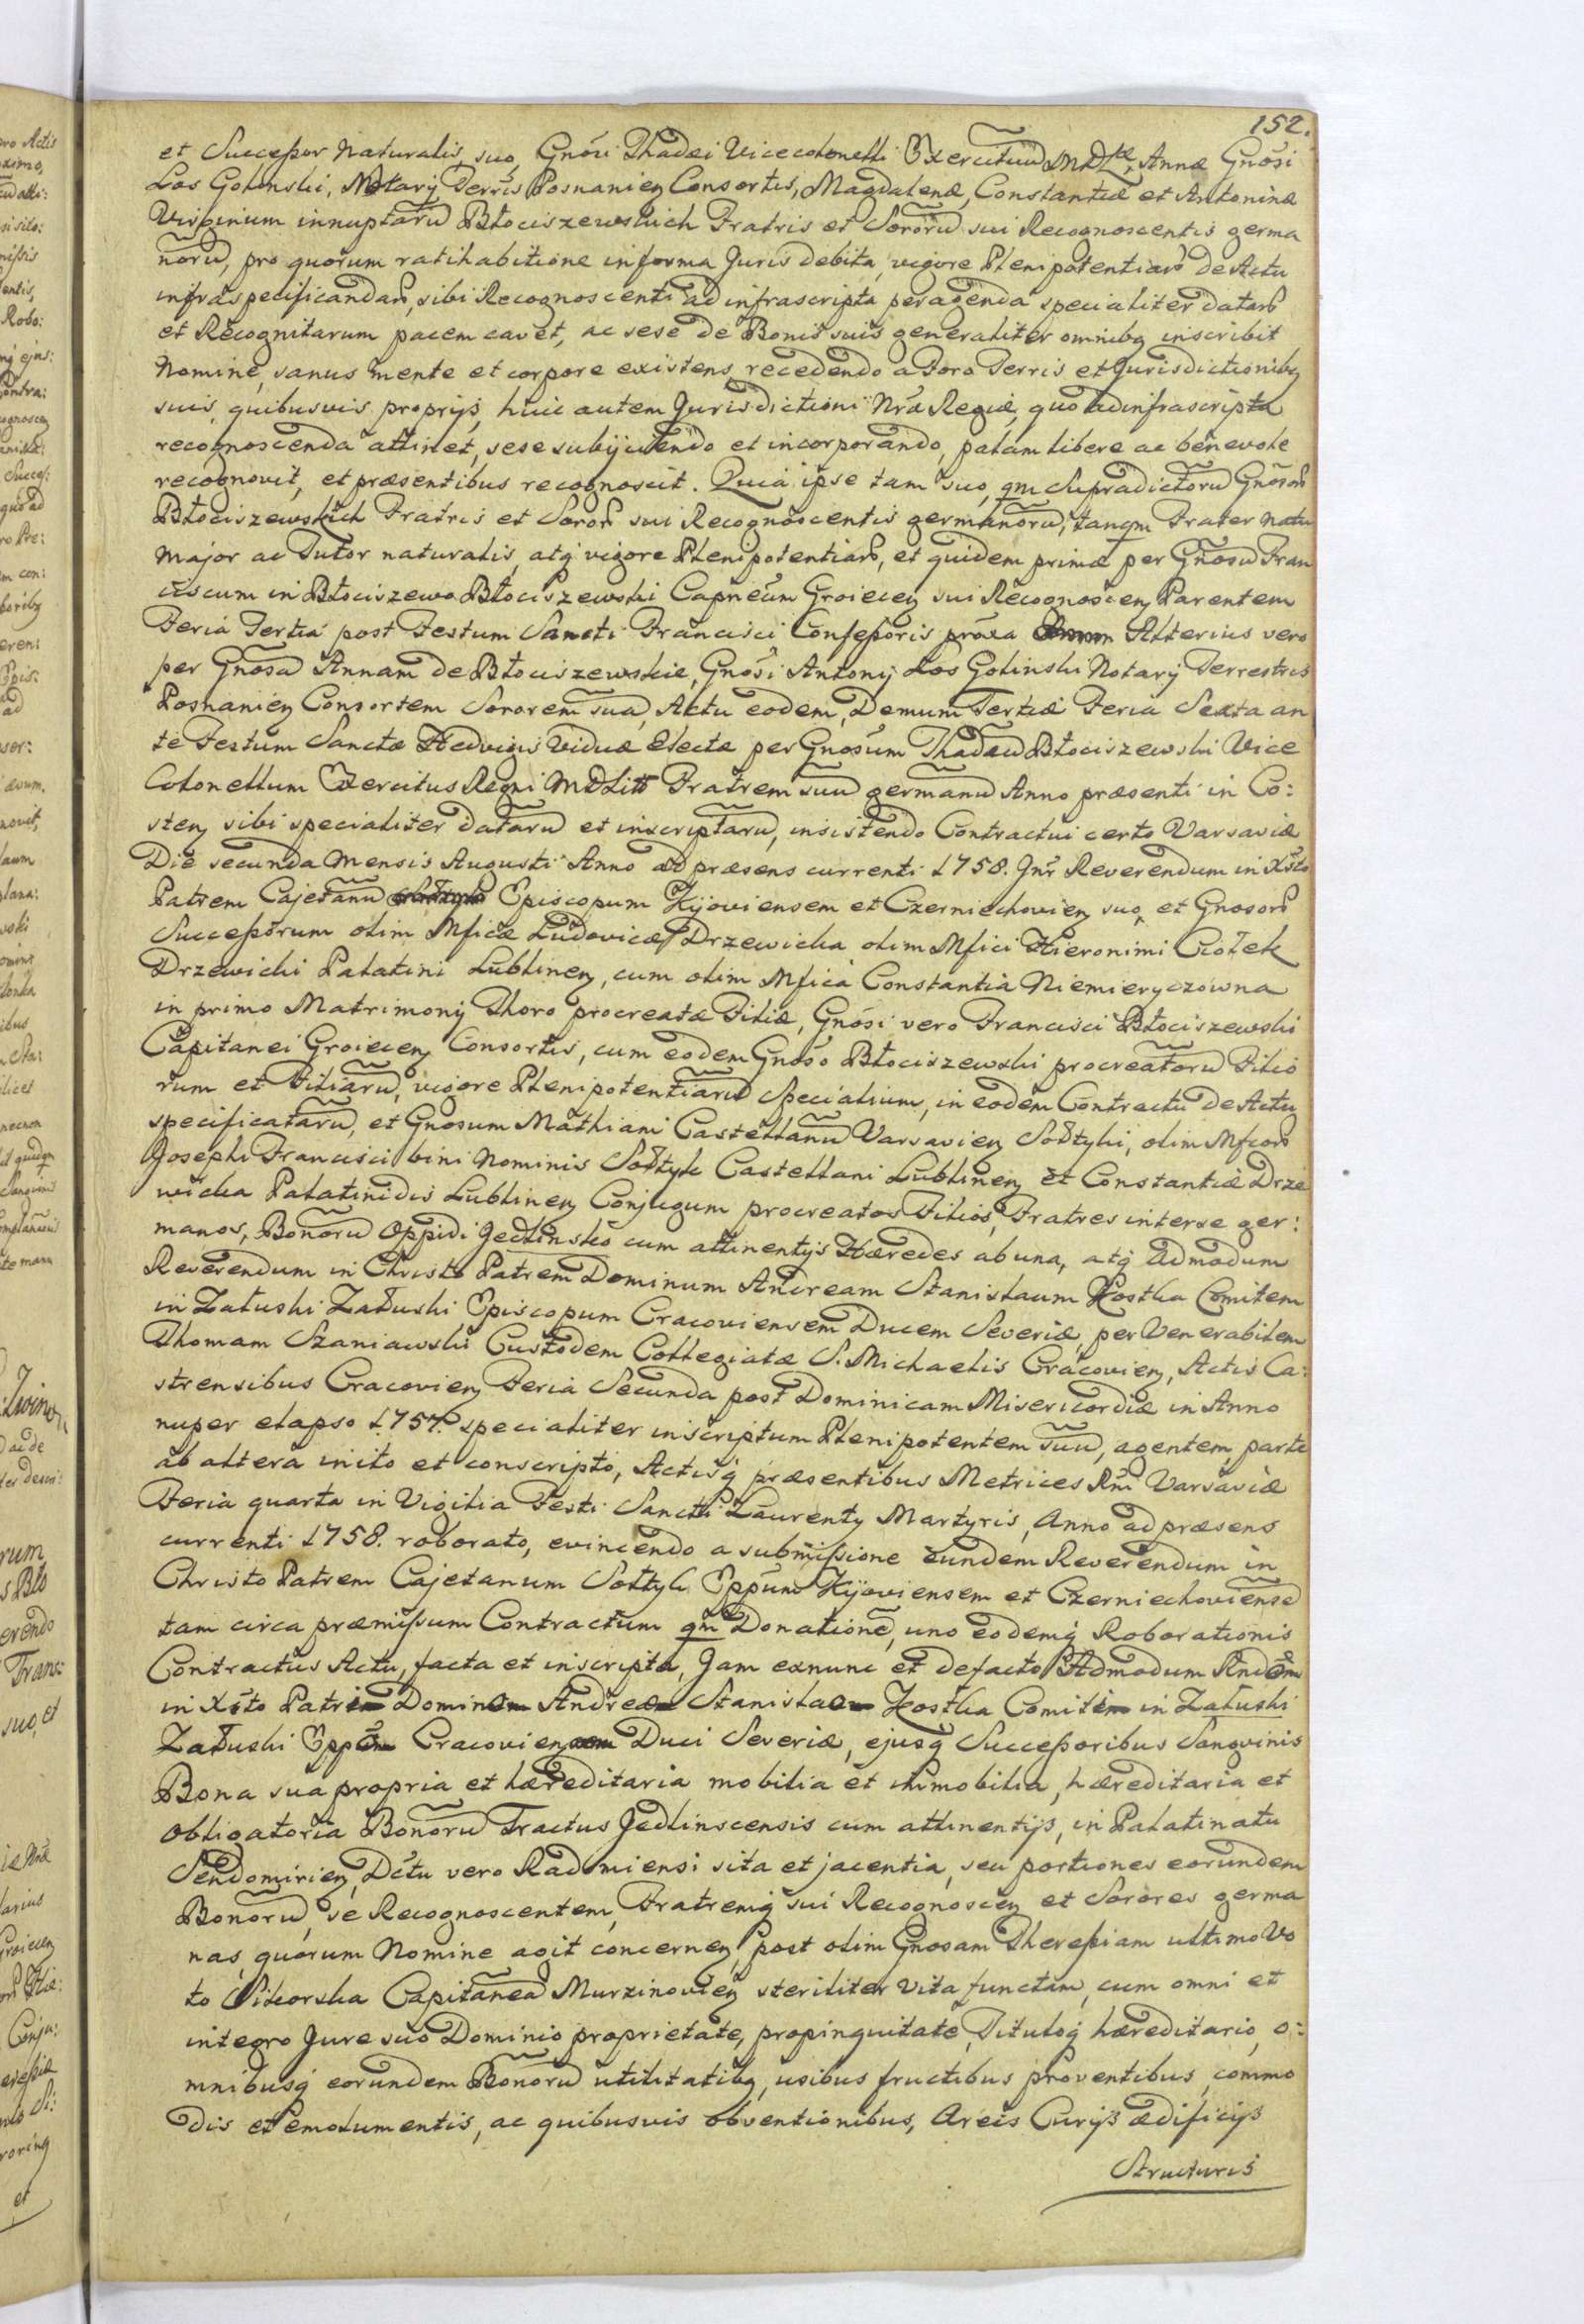 152.
et Successor Naturalis, suo, Gnosi Thadei Vicecolonelli Exercituu MDLtæ, Annæ Gnosi
Los Golinski, Notarij Terris Posnanien Consortis, Magdalenæ, Constantiæ et Antoninæ
Virginum innuptaru Błociszewskich Fratris et Sororu sui Recognoscentis germa
noru, pro quorum ratihabitione in forma Juris debita, vigore Plenipotentiaru de Actu
infra specificandaru, sibi Recognoscenti ad infrascripta peragenda specialiter dataru
et Recognitarum pacem cavet, ac sese de Bonis suis generaliter omnibq inscribit
Nomine, sanus mente et corpore existens, recedendo a Foro Terris et Jurisdictionibq
suis, quibusvis proprijs, huic autem Jurisdictioni Nræ Regiæ, quo ad infrascripta
recognoscenda attinet, sese subijciendo et incorporando, palam libere ac benevole
recognovit, et præsentibus recognoscit. Quia ipse tam suo, qm Supradictoru Gnosoru
Błociszewskich Fratris et Soror sui Recognoscentis germanoru, tanqm Frater Natu
major ac Tutor naturalis, atq vigore Plenipotentiaru, et quidem primæ per Gnosu Fran
ciscum in Błociszewo Błociszewski Capneum Groiecen sui Recognoscen Parentem
Feria Tertia post Festum Sancti Francisci Confessoris proxa Alterius vero
per Gnosa Annam de Błociszewskie, Gnosi Antonij Los Golinski Notarij Terrestris
Posnanien Consortem Sororem sua, Actu eodem, Demum Tertiæ Feria Sexta an
te Festum Sanctæ Hedvigis Viduæ Electæ per Gnosum Thadeu Błociszewski Vice
Colonellum Exercitus Regni MDLitt Fratrem suu germanu Anno præsenti in Co:
sten sibi specialiter dataru et inscriptaru, insistendo Contractui certo Varsaviæ
Die secunda Mensis Augusti Anno ad præsens currenti 1758. Jnr Reverendum in Xsto
Patrem Cajetanu Episcopum Kijoviensem et Czerniechovien suo, et Gnosoru
Successorum olim Mficæ Ludovicæ Drzewicka olim Mfici Hieronimi Ciołek
Drzewicki Palatini Lublinen, cum olim Mfica Constantia Niemieryczowna
in primo Matrimonij Thoro procreatæ Filiæ, Gnosi vero Francisci Błociszewski
Capitanei Groiecen Consortis, cum eodem Gnoso Błociszewski procreatoru Filio
rum et Filiaru, vigore Plenipotentiaru Specialium, in eodem Contractu de Actu
specificataru, et Gnosum Mathiam Castellanu Varsavien Sołtyki, olim Mficoru
Josephi Francisci bini Nominis Sołtyk Castellani Lublinen et Constantiæ Drze
wicka Palatinidis Lublinen Conjugum procreatos Filios, Fratres interse ger:
manos, Bonoru Oppidi Jedlinsko cum attinentijs Hæredes ab una, atq Admodum
Reverendum in Christo Patrem Dominum Andream Stanislaum Kostka Comitem
in Załuski Załuski Episcopum Cracoviensem Ducem Severiæ, per Venerabilem
Thomam Szaniawski Custodem Collegiatæ S. Michaelis Cracovien, Actis Ca:
strensibus Cracovien Feria Secunda post Dominicam Misericordiæ in Anno
nuper elapso 1757. specialiter inscriptum Plenipotentem suu, agentem, parte
ab altera inito et conscripto, Actisq præsentibus Metrices Rni Varsaviæ
Feria quarta in Vigilia Festi Sancti Laurenty Martyris, Anno ad præsens
currenti 1758. roborato, evincendo a submissione eundem Reverendum in
Christo Patrem Cajetanum Sołtyk Eppum Kijoviensem et Czerniechoviense
tam circa præmissum Contractum qm Donatione, uno eodemq Roborationis
Contractus Actu, facta et inscripta, Jam exnunc et defacto Admodum Rndo
in Xsto Patri Domino Andreæ Stanislao Kostka Comiti in Załuski
Załuski Eppo Cracovien Duci Severiæ, ejusq Successoribus Sangvinis
Bona sua propria et hæreditaria mobilia et immobilia, hæreditaria et
obligatoria Bonoru Tractus Jedlinscensis cum attinentijs, in Palatinatu
Sendomirien, Dctu vero Radomiensi sita et jacentia, seu portiones eorundem
Bonoru, se Recognoscentem, Fratremq sui Recognoscen et Sorores germa
nas, quorum Nomine agit concernen, post olim Gnosam Theressiam ultimo Vo
to Sikorska Capitanea Murzinovien steriliter vita functam, cum omni et
integro Jure suo Dominio proprietate, propinquitate, Tituloq hæreditario, o:
mnibusq eorundem Bonoru utilitatibq, usibus fructibus proventibus, commo
dis et emolumentis, ac quibusvis obventionibus, Areis Curijs ædificijs
Structuris